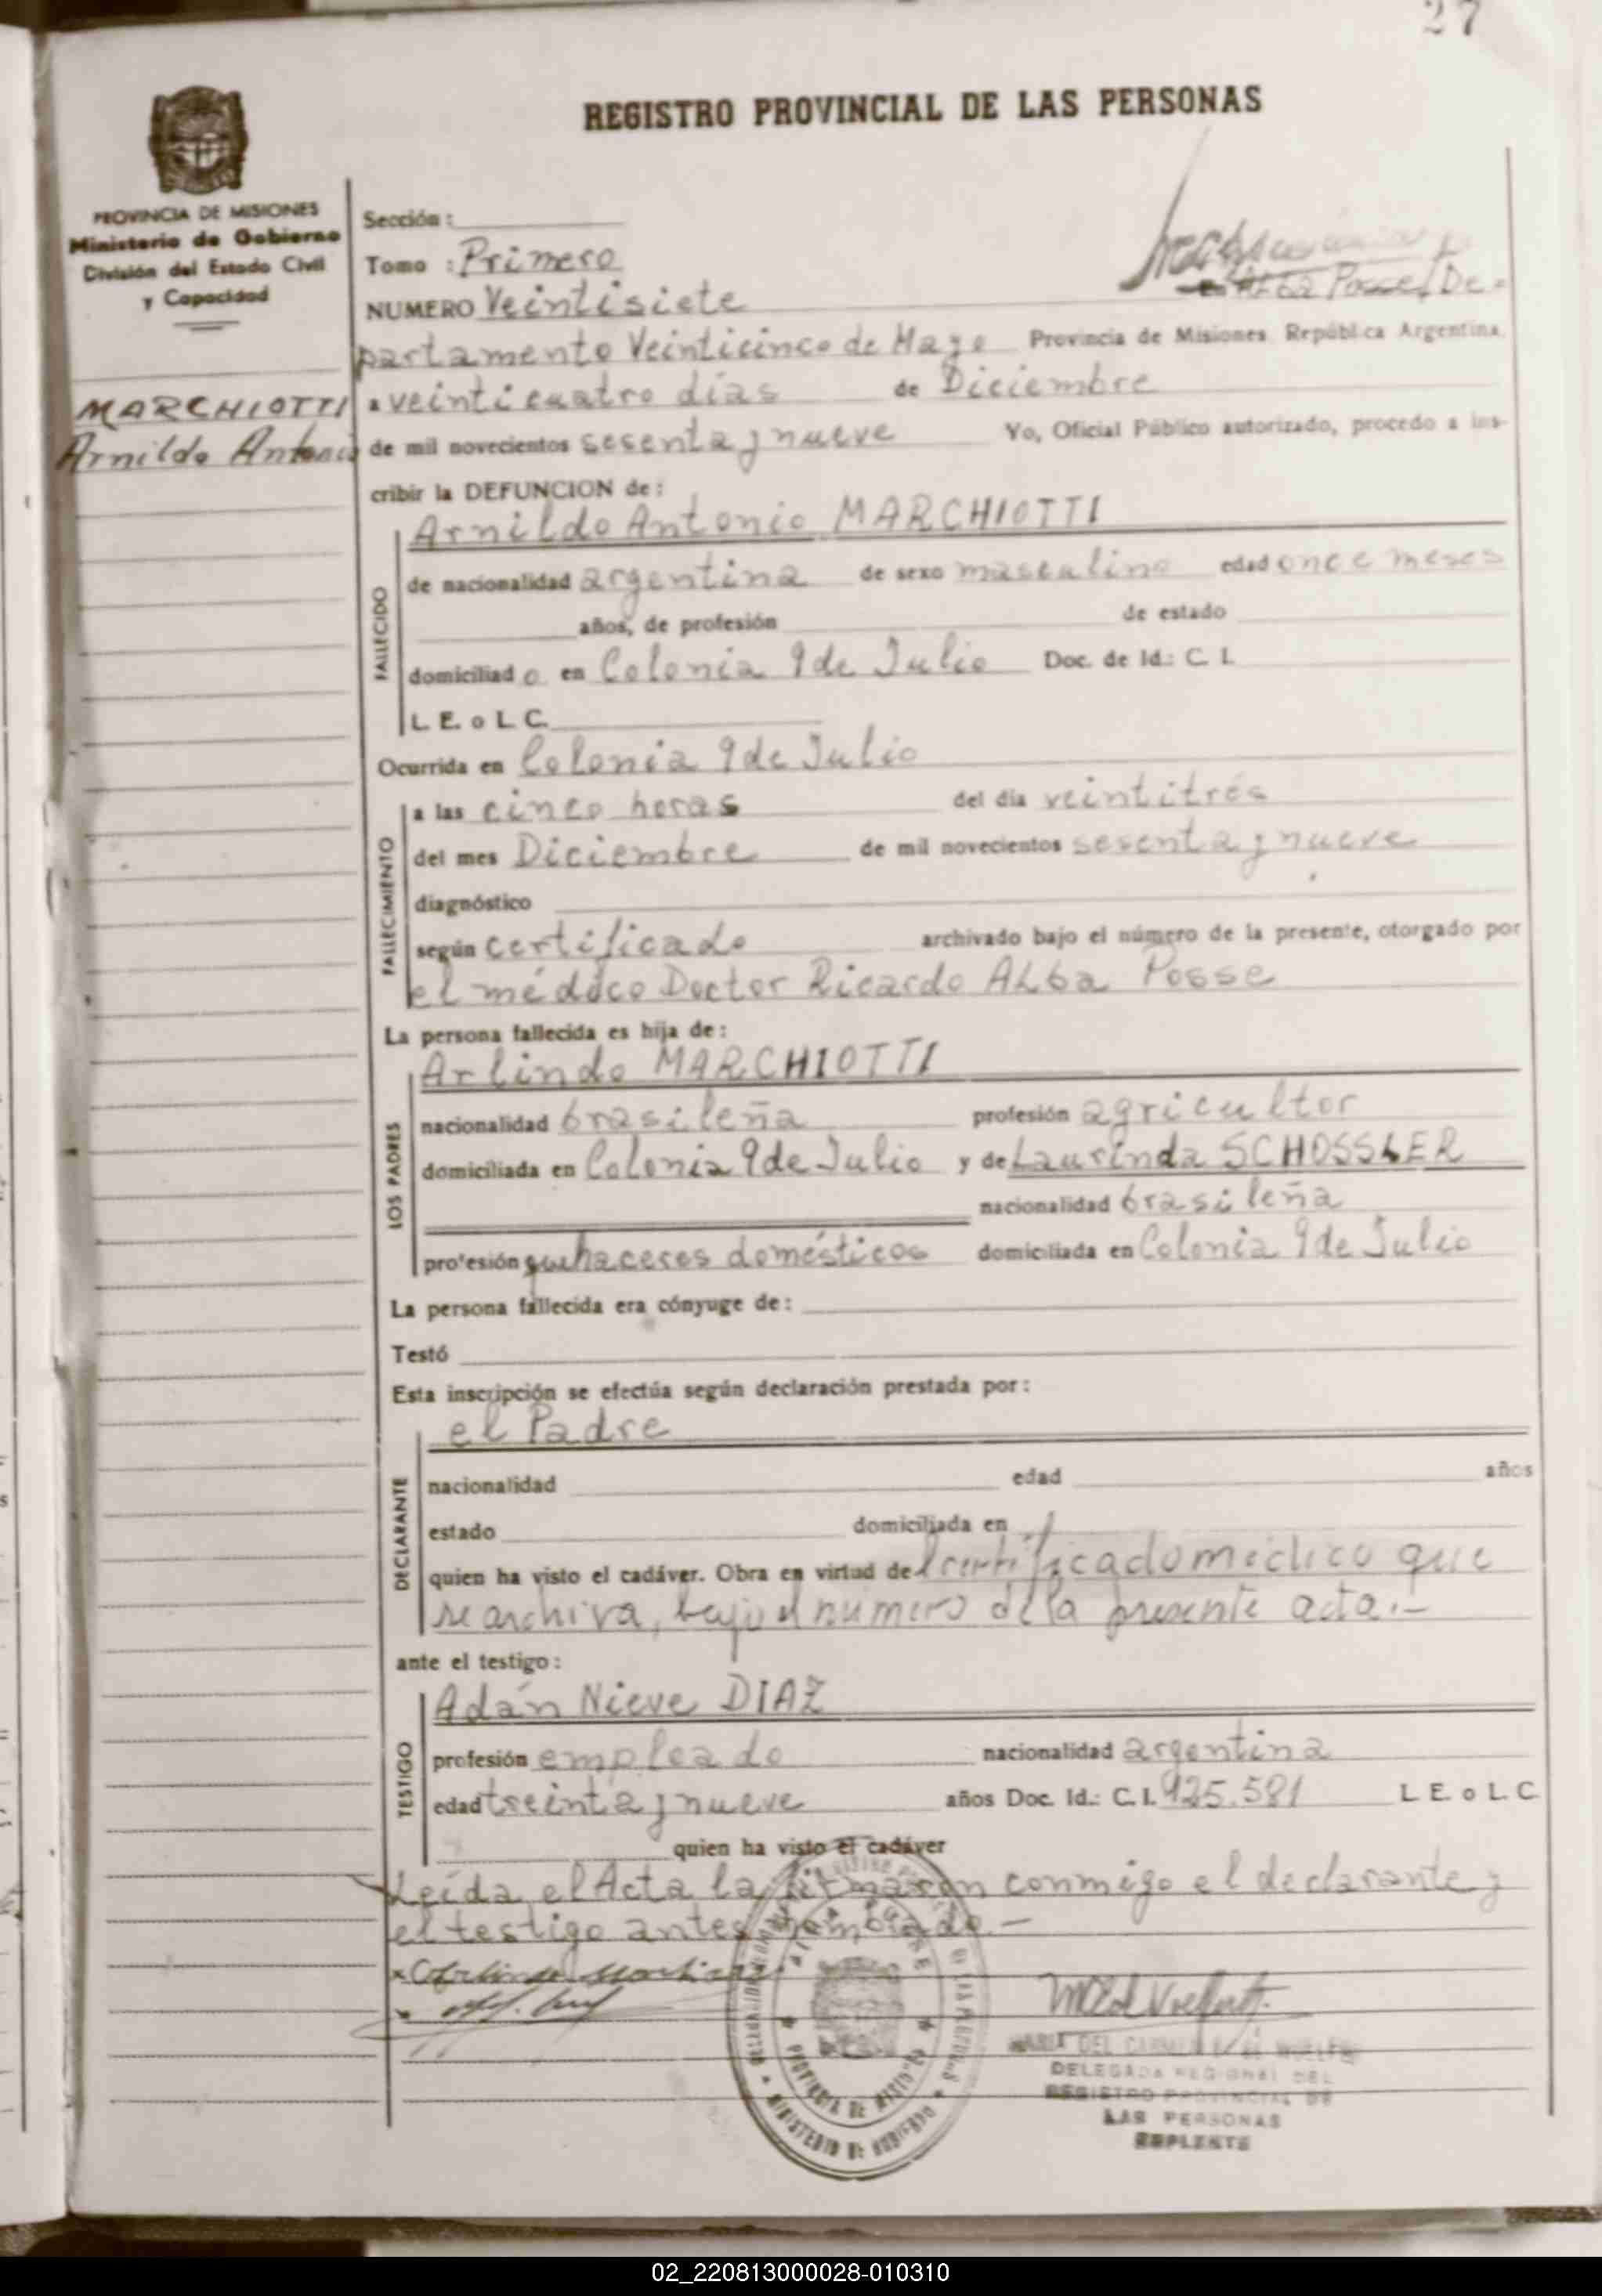 27
REGISTRO PROVINCIAL DE LAS PERSONAS
PROVINCIA DE MISIONES
Ministerio de Gobierno
División del Estado Civil
y Capacidad
MARCHIOTTI
Arnildo Antonio
Sección:
Tomo : Primero
NUMERO Veintisiete
en Alba Posse, De=
partamento Veinticinco de Mayo Provincia de Misiones República Argentina.
a veinticuatro días de Diciembre
de mil novecientos sesenta y nueve Yo, Oficial Público autorizado, procedo a ins-
cribir la DEFUNCION de:
FALLECIDO
Arnildo Antonio MARCHIOTTI
de nacionalidad argentina de sexo masculino edad once meses
años, de profesión de estado
domiciliado en Colonia 9 de Julio Doc. de Id.: C. I.
L. E. o L. C.
Ocurrida en Colonia 9 de Julio
FALLECIMIENTO
a las cinco horas del día veintitrés
del mes Diciembre de mil novecientos sesenta y nueve
diagnóstico
según certificado archivado bajo el número de la presente, otorgado por
el médico Doctor Ricardo ALba Posse
La persona fallecida es hija de:
LOS PADRES
Arlindo MARCHIOTTI
nacionalidad brasileña profesión agricultor
domiciliada en Colonia 9 de Julio y de Laurinda SCHOSSLER
nacionalidad brasileña
profesión quehaceres domésticos domiciliada en Colonia 9 de Julio
La persona fallecida era cónyuge de:
Testó
Esta inscripción se efectúa según declaración prestada por:
DECLARANTE
el Padre
nacionalidad edad años
estado domiciliada en
quien ha visto el cadáver. Obra en virtud del certificado médico que
se archiva, bajo el numero de la presente acta.-
ante el testigo:
TESTIGO
Adán Nieve DIAZ
profesión empleado nacionalidad argentina
edad treinta y nueve años Doc. Id.: C. I. 925.581 L. E. o L. C.
quien ha visto el cadáver
Leída el Acta la firmaron conmigo el declarante y
el testigo antes nombrado.-
PROVINCIA DE MISIONES
MINISTERIO DE GOBIERNO
MARIA DEL CARMEN
DELEGADA REGIONAL DEL
REGISTRO PROVINCIAL DE
LAS PERSONAS
SUPLENTE
02_220813000028-010310